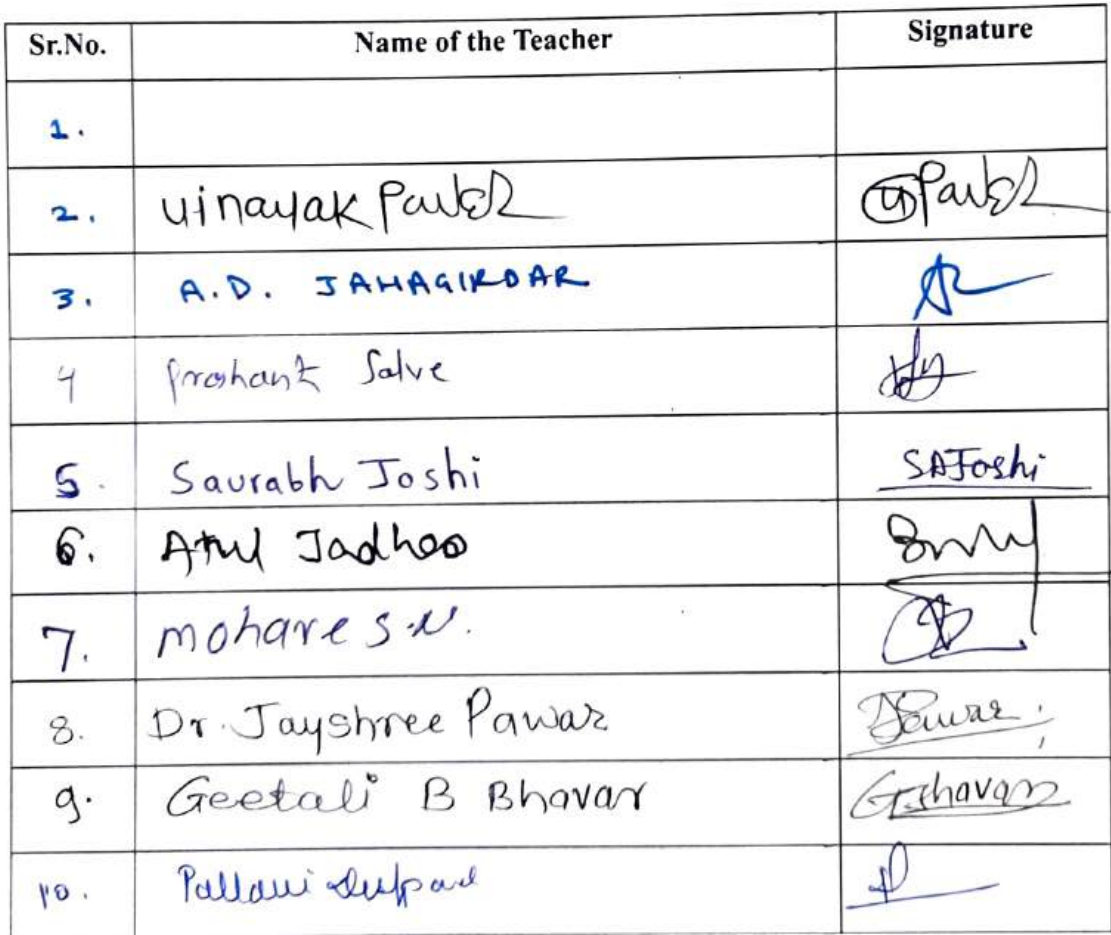 Sr.No. Name of the Teacher Signature
1.
2. Vinayak
3. A.D. JAHAGIRDAR
4 Prashant Salve
5. Saurabh Joshi SAJoshi
6. Atul Jadhao
7. Mohare S.N.
8. Dr. Jayshree Pawar
9. Geetali B Bhavar
10. Pallavi